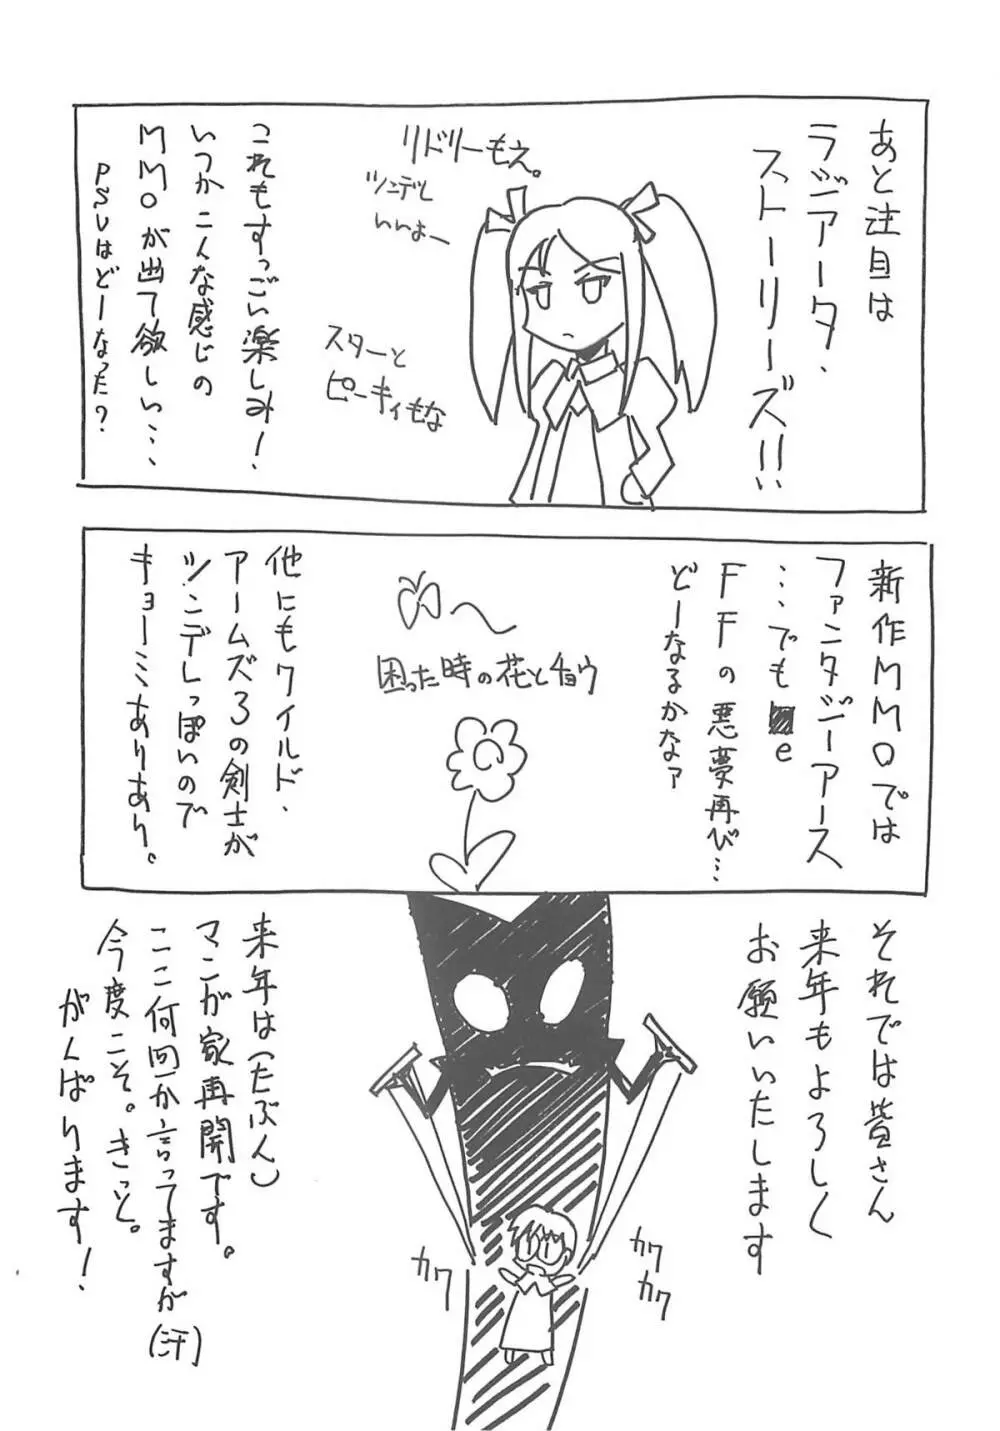 あと注目は
ラジアータ・
ストーリーズ!!
リドリーもえ。
ツンデレ
いいよー
スターと
ピーキィもな
これもすっごい楽しみ!
いつかこんな感じの
MMOが出て欲しい…
PSUはどーなった?
新作MMOでは
ファンタジーアース
…でも
e
FFの悪夢再び…
どーなるかなァ
困った時の花とチョウ
他にもワイルド・
アームズ3の剣士が
ツンデレっぽいので
キョーミありあり。
それでは皆さん
来年もよろしく
お願いいたします
カク
カク
カク
来年は(たぶん)
マンガ家再開です。
ここ何回か言ってますが(汗)
今度こそ。きっと。
がんばります!